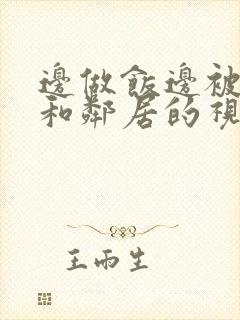 邊做飯邊被
和鄰居的視
王雨生